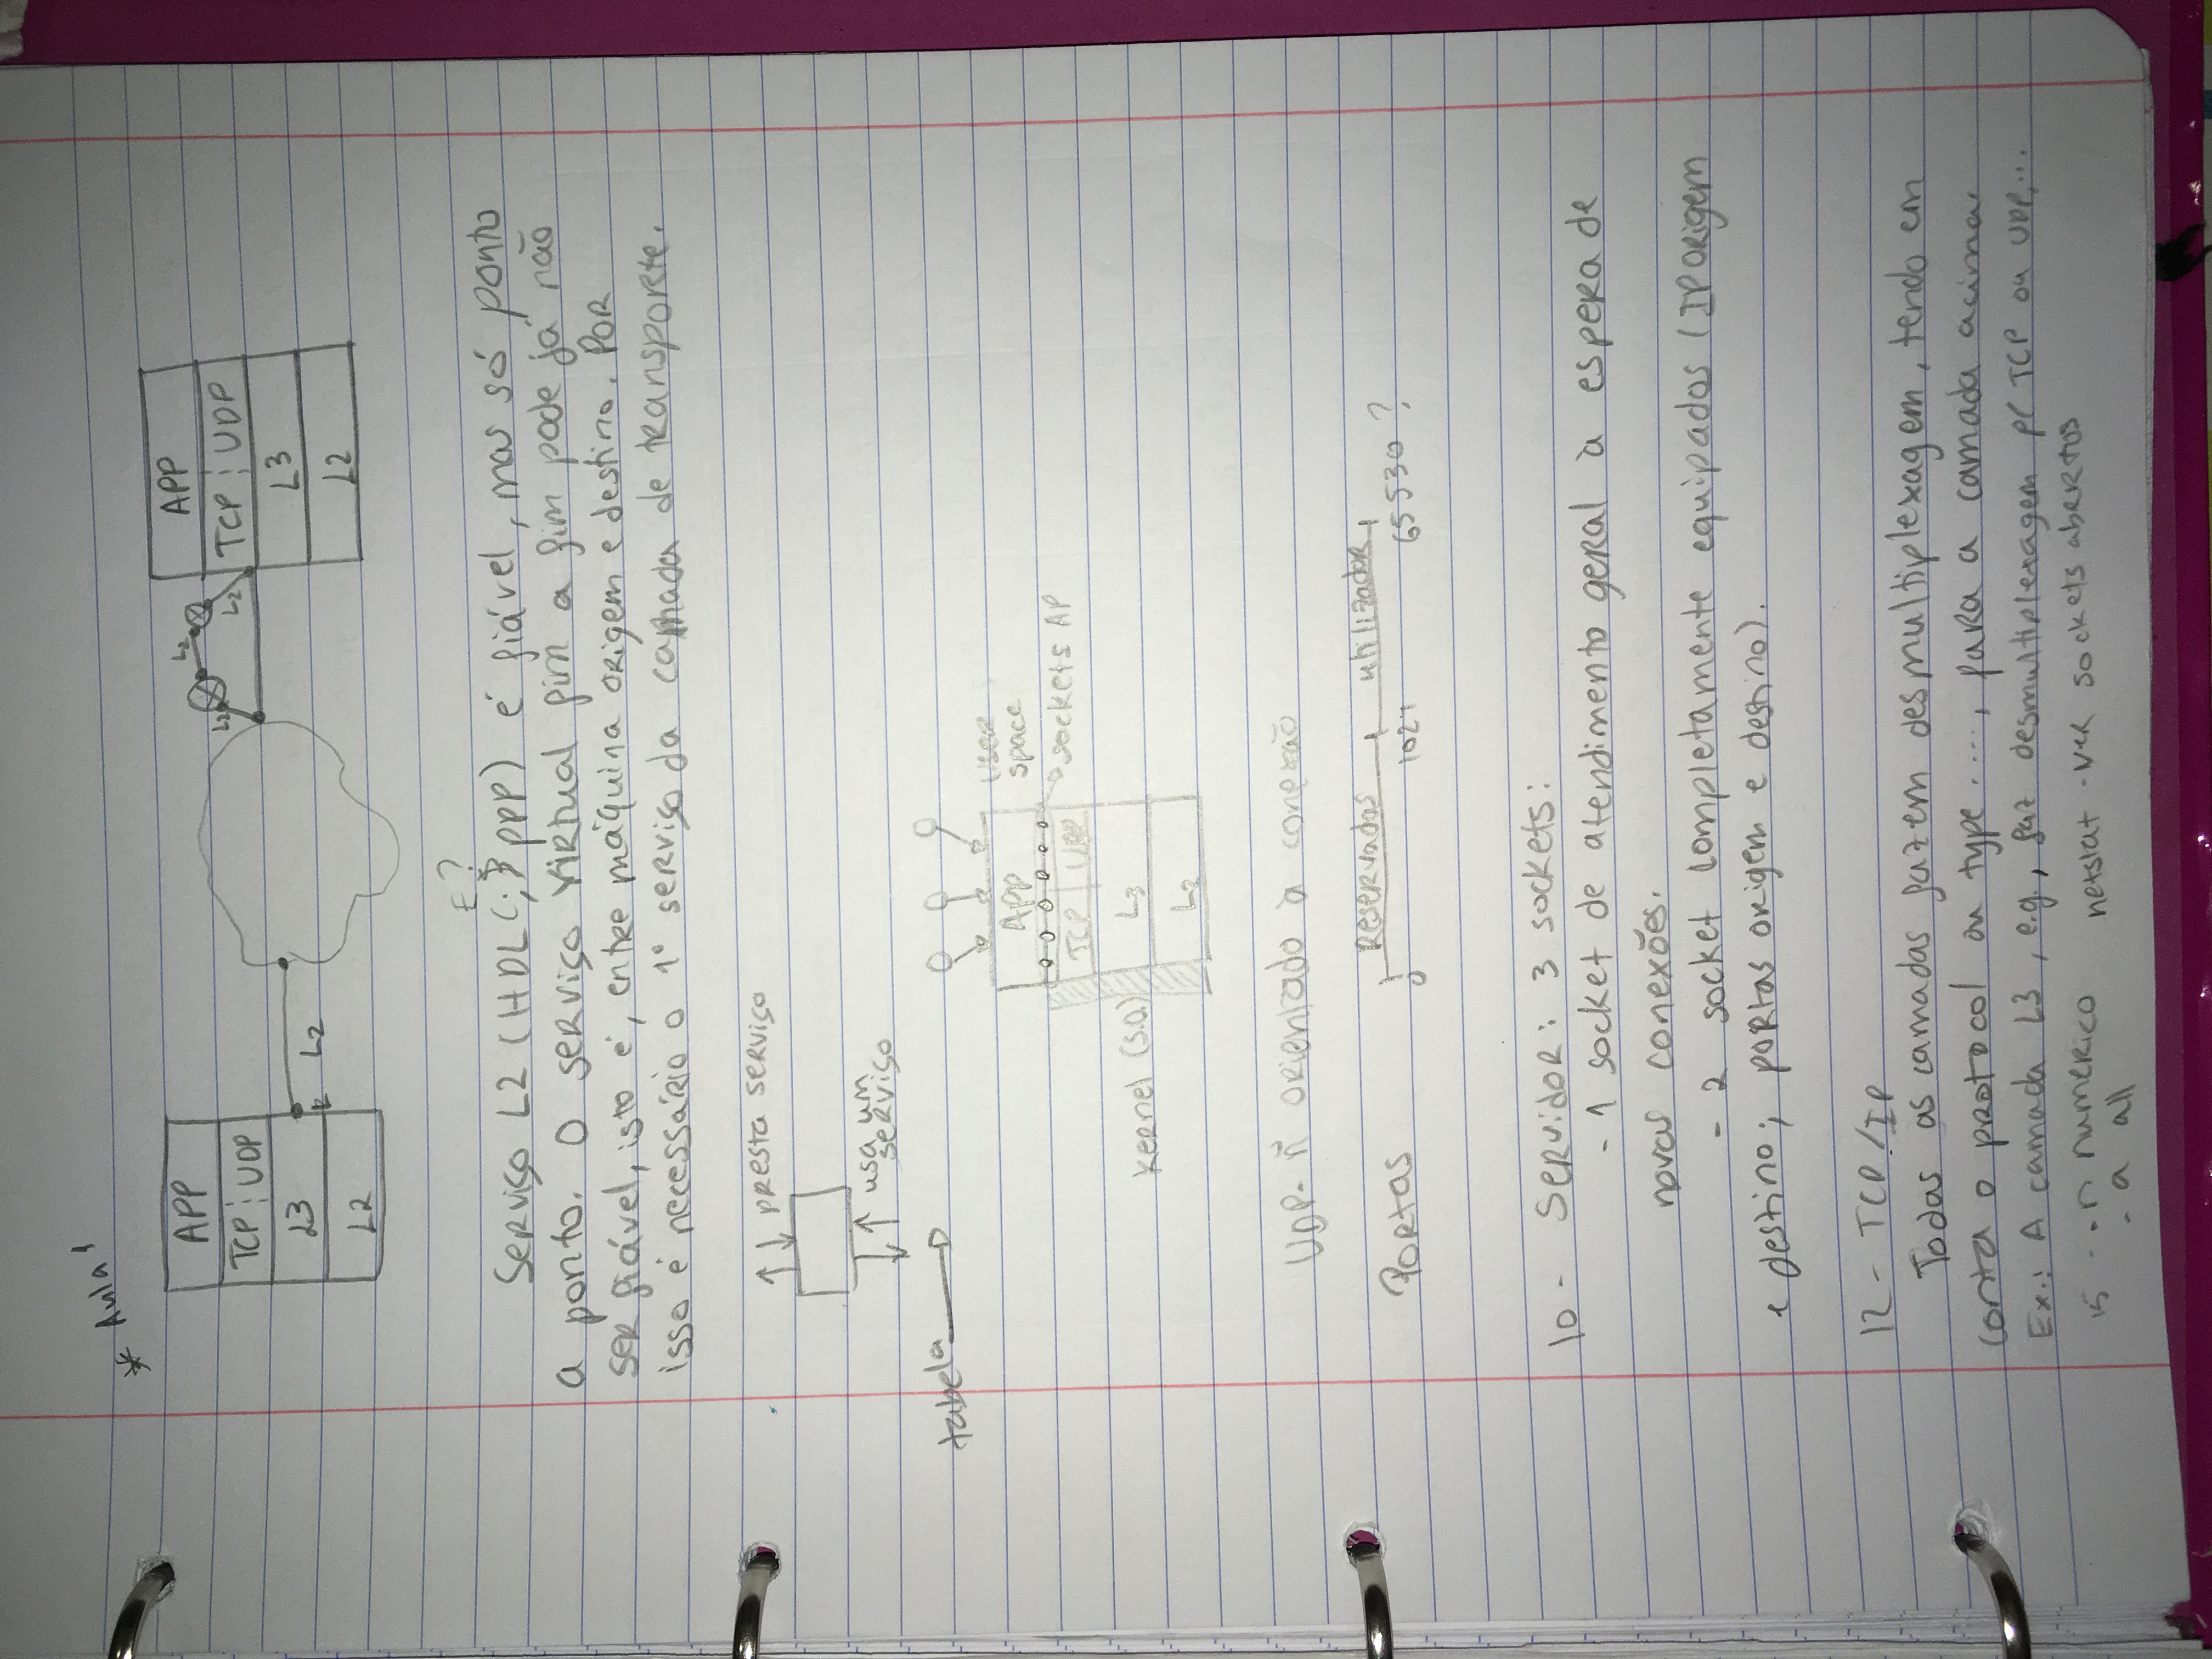 * Aula 1
APP
TCP UDP
L3
L2
L2
L2
L2
L2
APP
TCP UDP
L3
L2
E?
Serviço L2 (HDLC; PPP) é fiável, mas só ponto
a ponto. O serviço virtual fim a fim pode já não
ser fiável, isto é, entre máquina origem e destino. Por
isso é necessário o 1º serviço da camada de transporte.
presta serviço
usa um
serviço
tabela
APP
user
space
sockets AP
TCP UDP
Kernel (S.O.)
L3
L2
UDP - ñ orientado à conexão
Portas
Reservadas utilizador
0 1024 65530?
10 - Servidor: 3 sockets:
- 1 socket de atendimento geral à espera de
novas conexões.
- 2 socket completamente equipados (IP origem
e destino; portas origem e destino).
12 - TCP/IP
Todas as camadas fazem desmultiplexagem, tendo em
conta o protocol ou type ...., para a camada acima.
Ex.: A camada L3, e.g., faz desmultiplexagem p/ TCP ou UDP,...
15 - n numerico netstat - ver sockets abertos
- a all